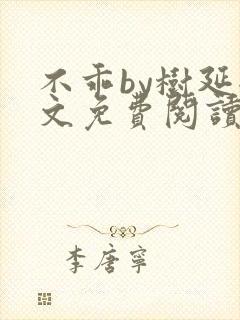 不乖by樹延
文免費閱讀
李唐寧